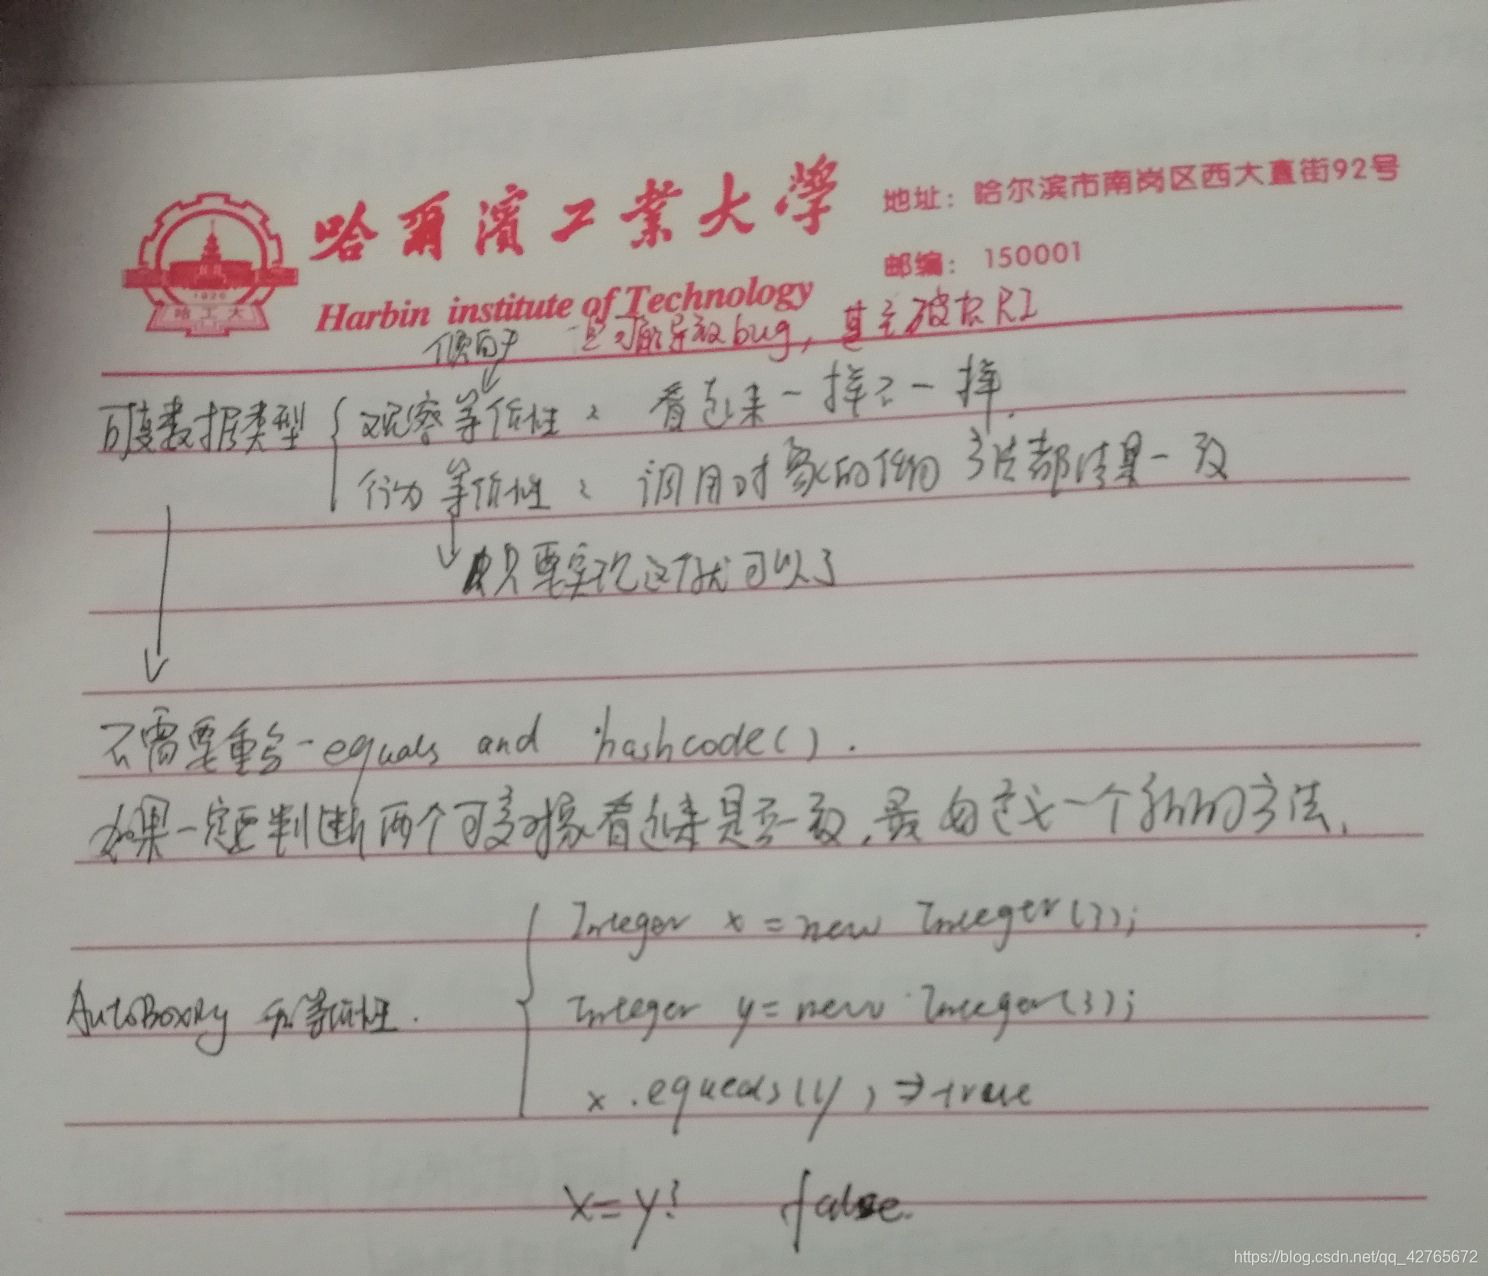 哈爾濱工業大學
Harbin institute of Technology
地址：哈尔滨市南岗区西大直街92号
邮编：150001
倾向于 但可能导致bug，甚至破坏RI
可变数据类型 { 观察等价性： 看起来一样不一样.
行为等价性： 调用对象的任何方法都结果一致
只要实现这个就可以了
不需要重写 equals and hashcode().
如果一定要判断两个可变对象看起来是否一致,最 定义一个新的方法.
Integer x = new Integer(3);
AutoBoxing 和等价性. { Integer y = new Integer(3);
x.equals(y) → true
x=y? false.
https://blog.csdn.net/qq_42765672